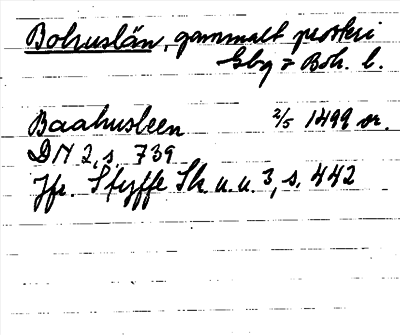 Bohuslän, gammalt prosteri
Gbg = Boh. l.
Baahusleen 2/5 1499 or.
DN 2, s. 739
Jfr. Styffe Sk. u. u. 3, s. 442